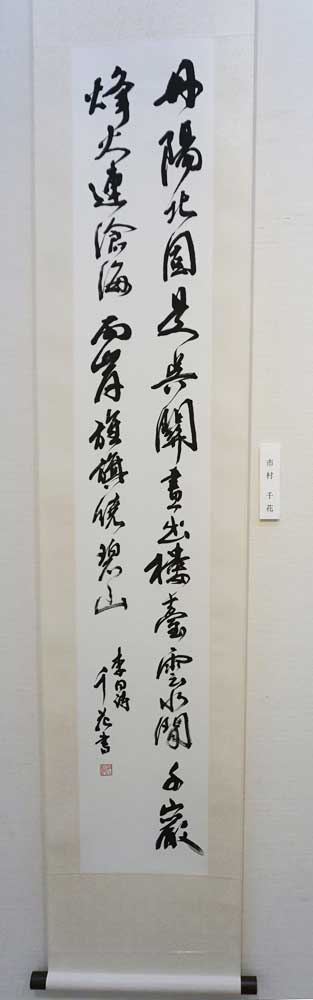 丹陽北固是吳關畫出樓臺雲水間千巖
烽火連滄海兩岸旌旗繞碧山
李白詩
千花書
市村 千花